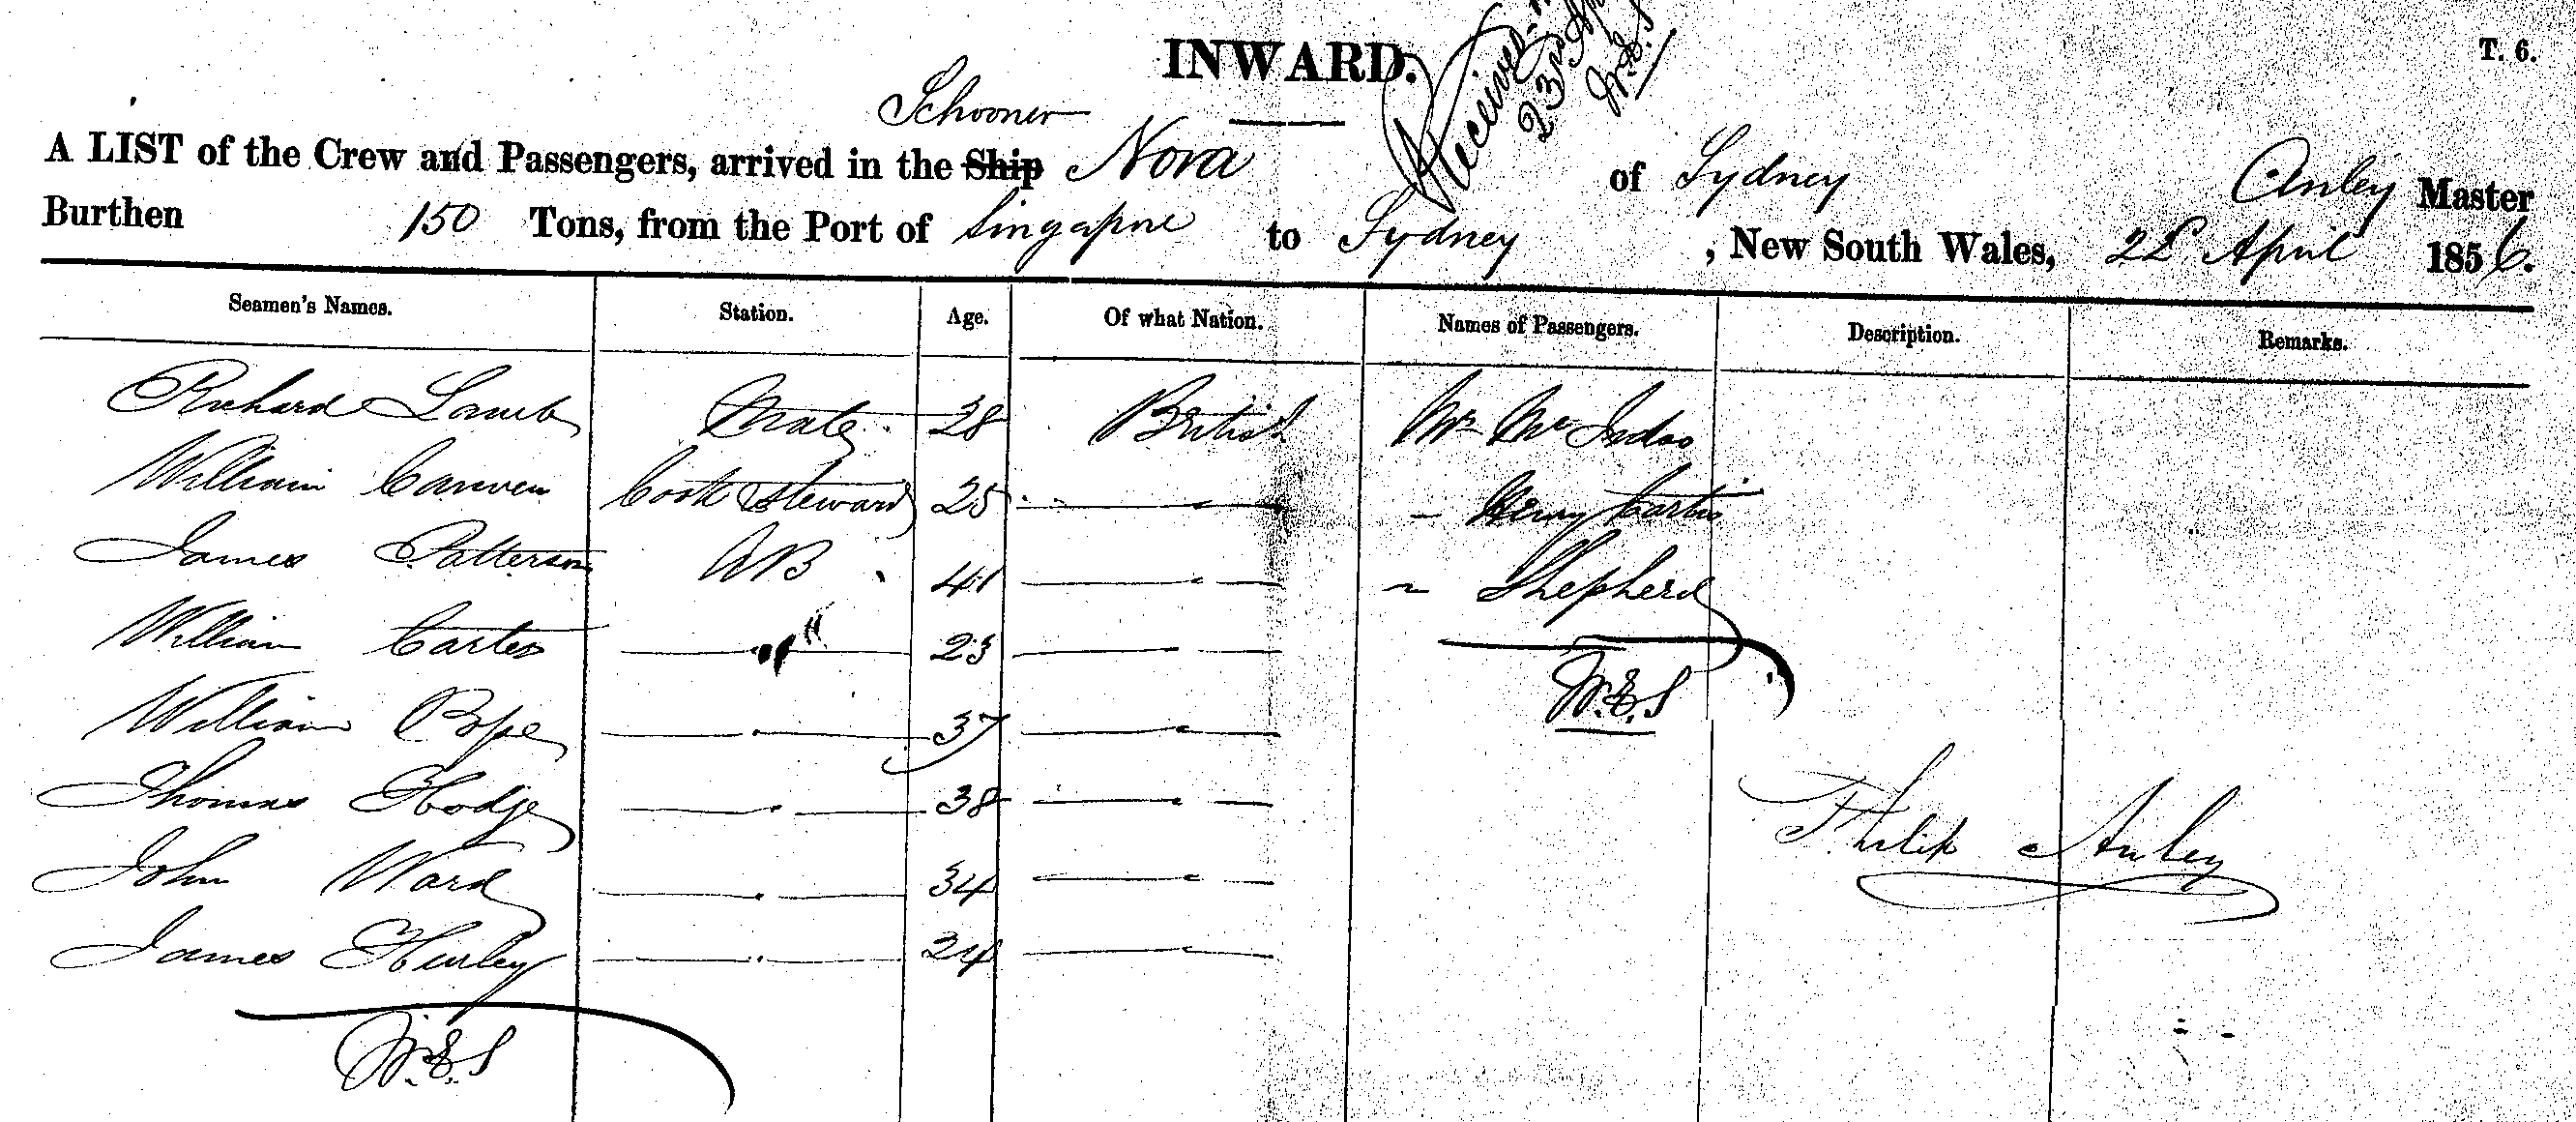 INWARD.
T. 6.
Received
23rd
W.E.S
Schooner
A LIST of the Crew and Passengers, arrived in the Ship Nora of Sydney Anley Master
Burthen 150 Tons, from the Port of Singapore to Sydney , New South Wales, 22d April 1856.
Seamen's Names. Station. Age. Of what Nation. Names of Passengers. Description. Remarks.
Richard Lamb Mate 28 British Mr Mc
William Cook & Steward 25 " Henry
James Patterson AB 41 " Shepherd
William Carter " 23 "
W.E.S
William Pope " 37 "
Thomas Hodge " 38 "
Philip Anley
John Ward " 34 "
James Hurley " 24 "
W.E.S